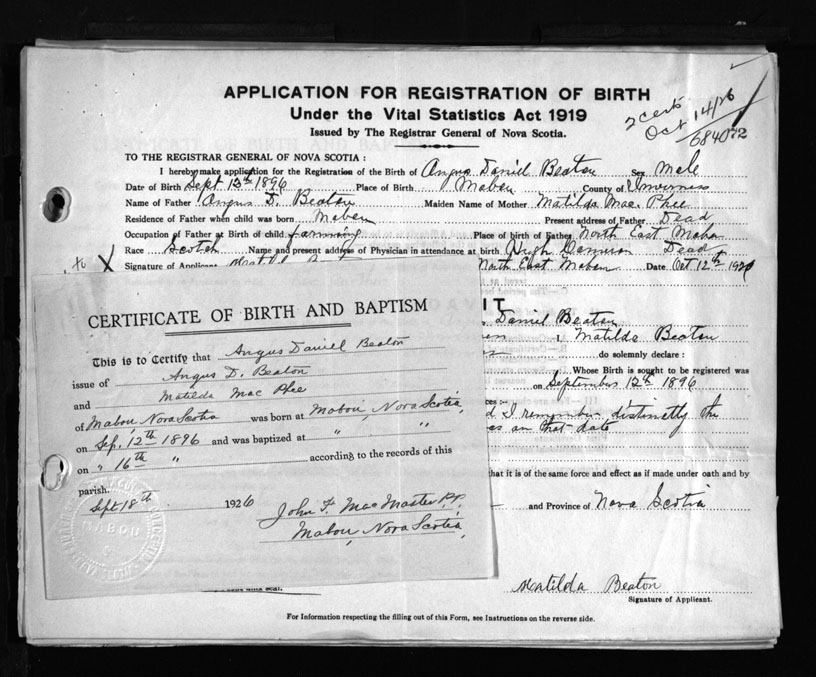 2 certs
Oct 14/26
684072
APPLICATION FOR REGISTRATION OF BIRTH
Under the Vital Statistics Act 1919
Issued by The Registrar General of Nova Scotia.
TO THE REGISTRAR GENERAL OF NOVA SCOTIA :
I hereby make application for the Registration of the Birth of Angus Daniel Beaton Sex Male
Date of Birth Sept 12th 1896 Place of Birth Mabou County of Inverness
Name of Father Angus D. Beaton Maiden Name of Mother Matilda Mac Phee
Residence of Father when child was born Mabou Present address of Father Dead
Occupation of Father at Birth of child farming Place of birth of Father North East Mabou
Race Scotch Name and present address of Physician in attendance at birth Hugh Dead
to X Signature of Applicant North East Mabou Date Oct 12th 1926
CERTIFICATE OF BIRTH AND BAPTISM
This is to Certify that Angus Daniel Beaton
issue of Angus D. Beaton
and Matilda Mac Phee
of Mabou Nova Scotia was born at Mabou Nova Scotia,
on Sep. 12th 1896 and was baptized at " "
on " 16th " according to the records of this
parish.
Sept 18th 1926 John F. Mac Master P.P.
Mabou, Nova Scotia,
MABOU
IT
Daniel Beaton
I, Matilda Beaton
do solemnly declare :
Whose Birth is sought to be registered was
on September 12th 1896
d I remember distinctly the
as on that date
that it is of the same force and effect as if made under oath and by
and Province of Nova Scotia
Matilda Beaton
Signature of Applicant.
For Information respecting the filling out of this Form, see Instructions on the reverse side.